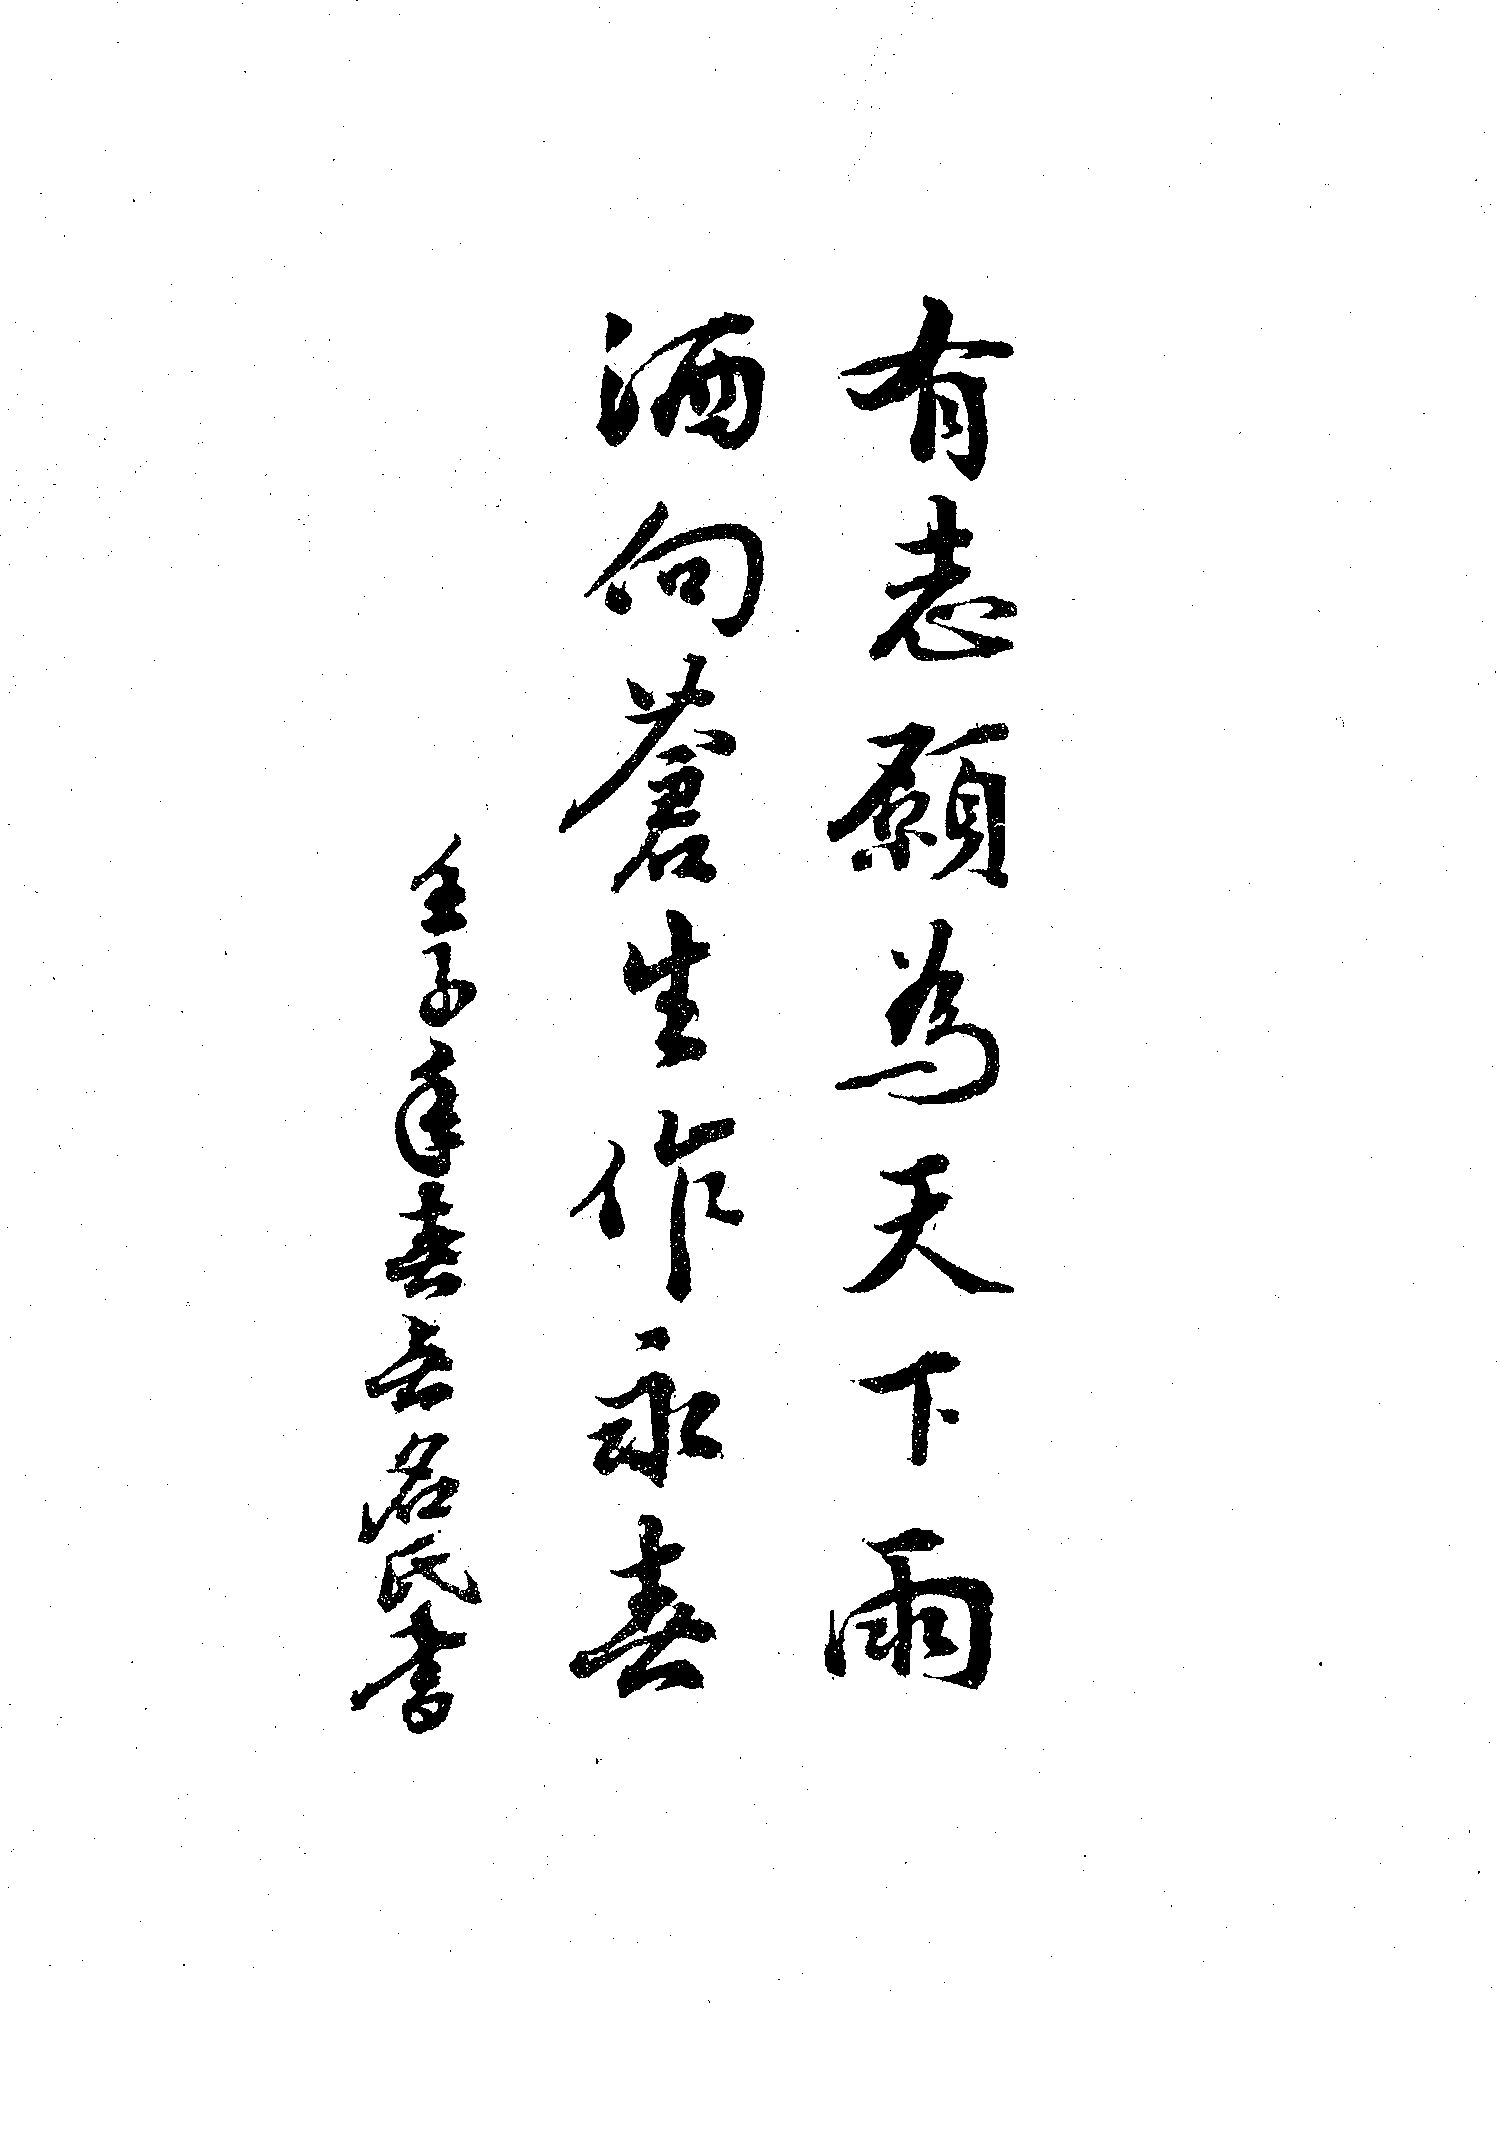 有志願為天下雨
洒向蒼生作永春
壬子年春無名氏書